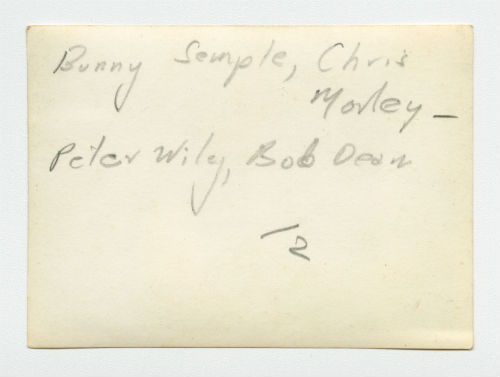 Bunny Semple, Chris
Morley –
Peter Wily, Bob Dean